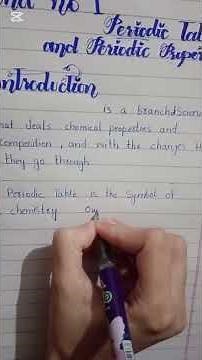 no 1
Periodic Tal
and Periodic Proper
ntroduction
is a branch
that deals chemical properties and
composition, and with the changes
they go through
Periodic Table is the symbol of
chemistry